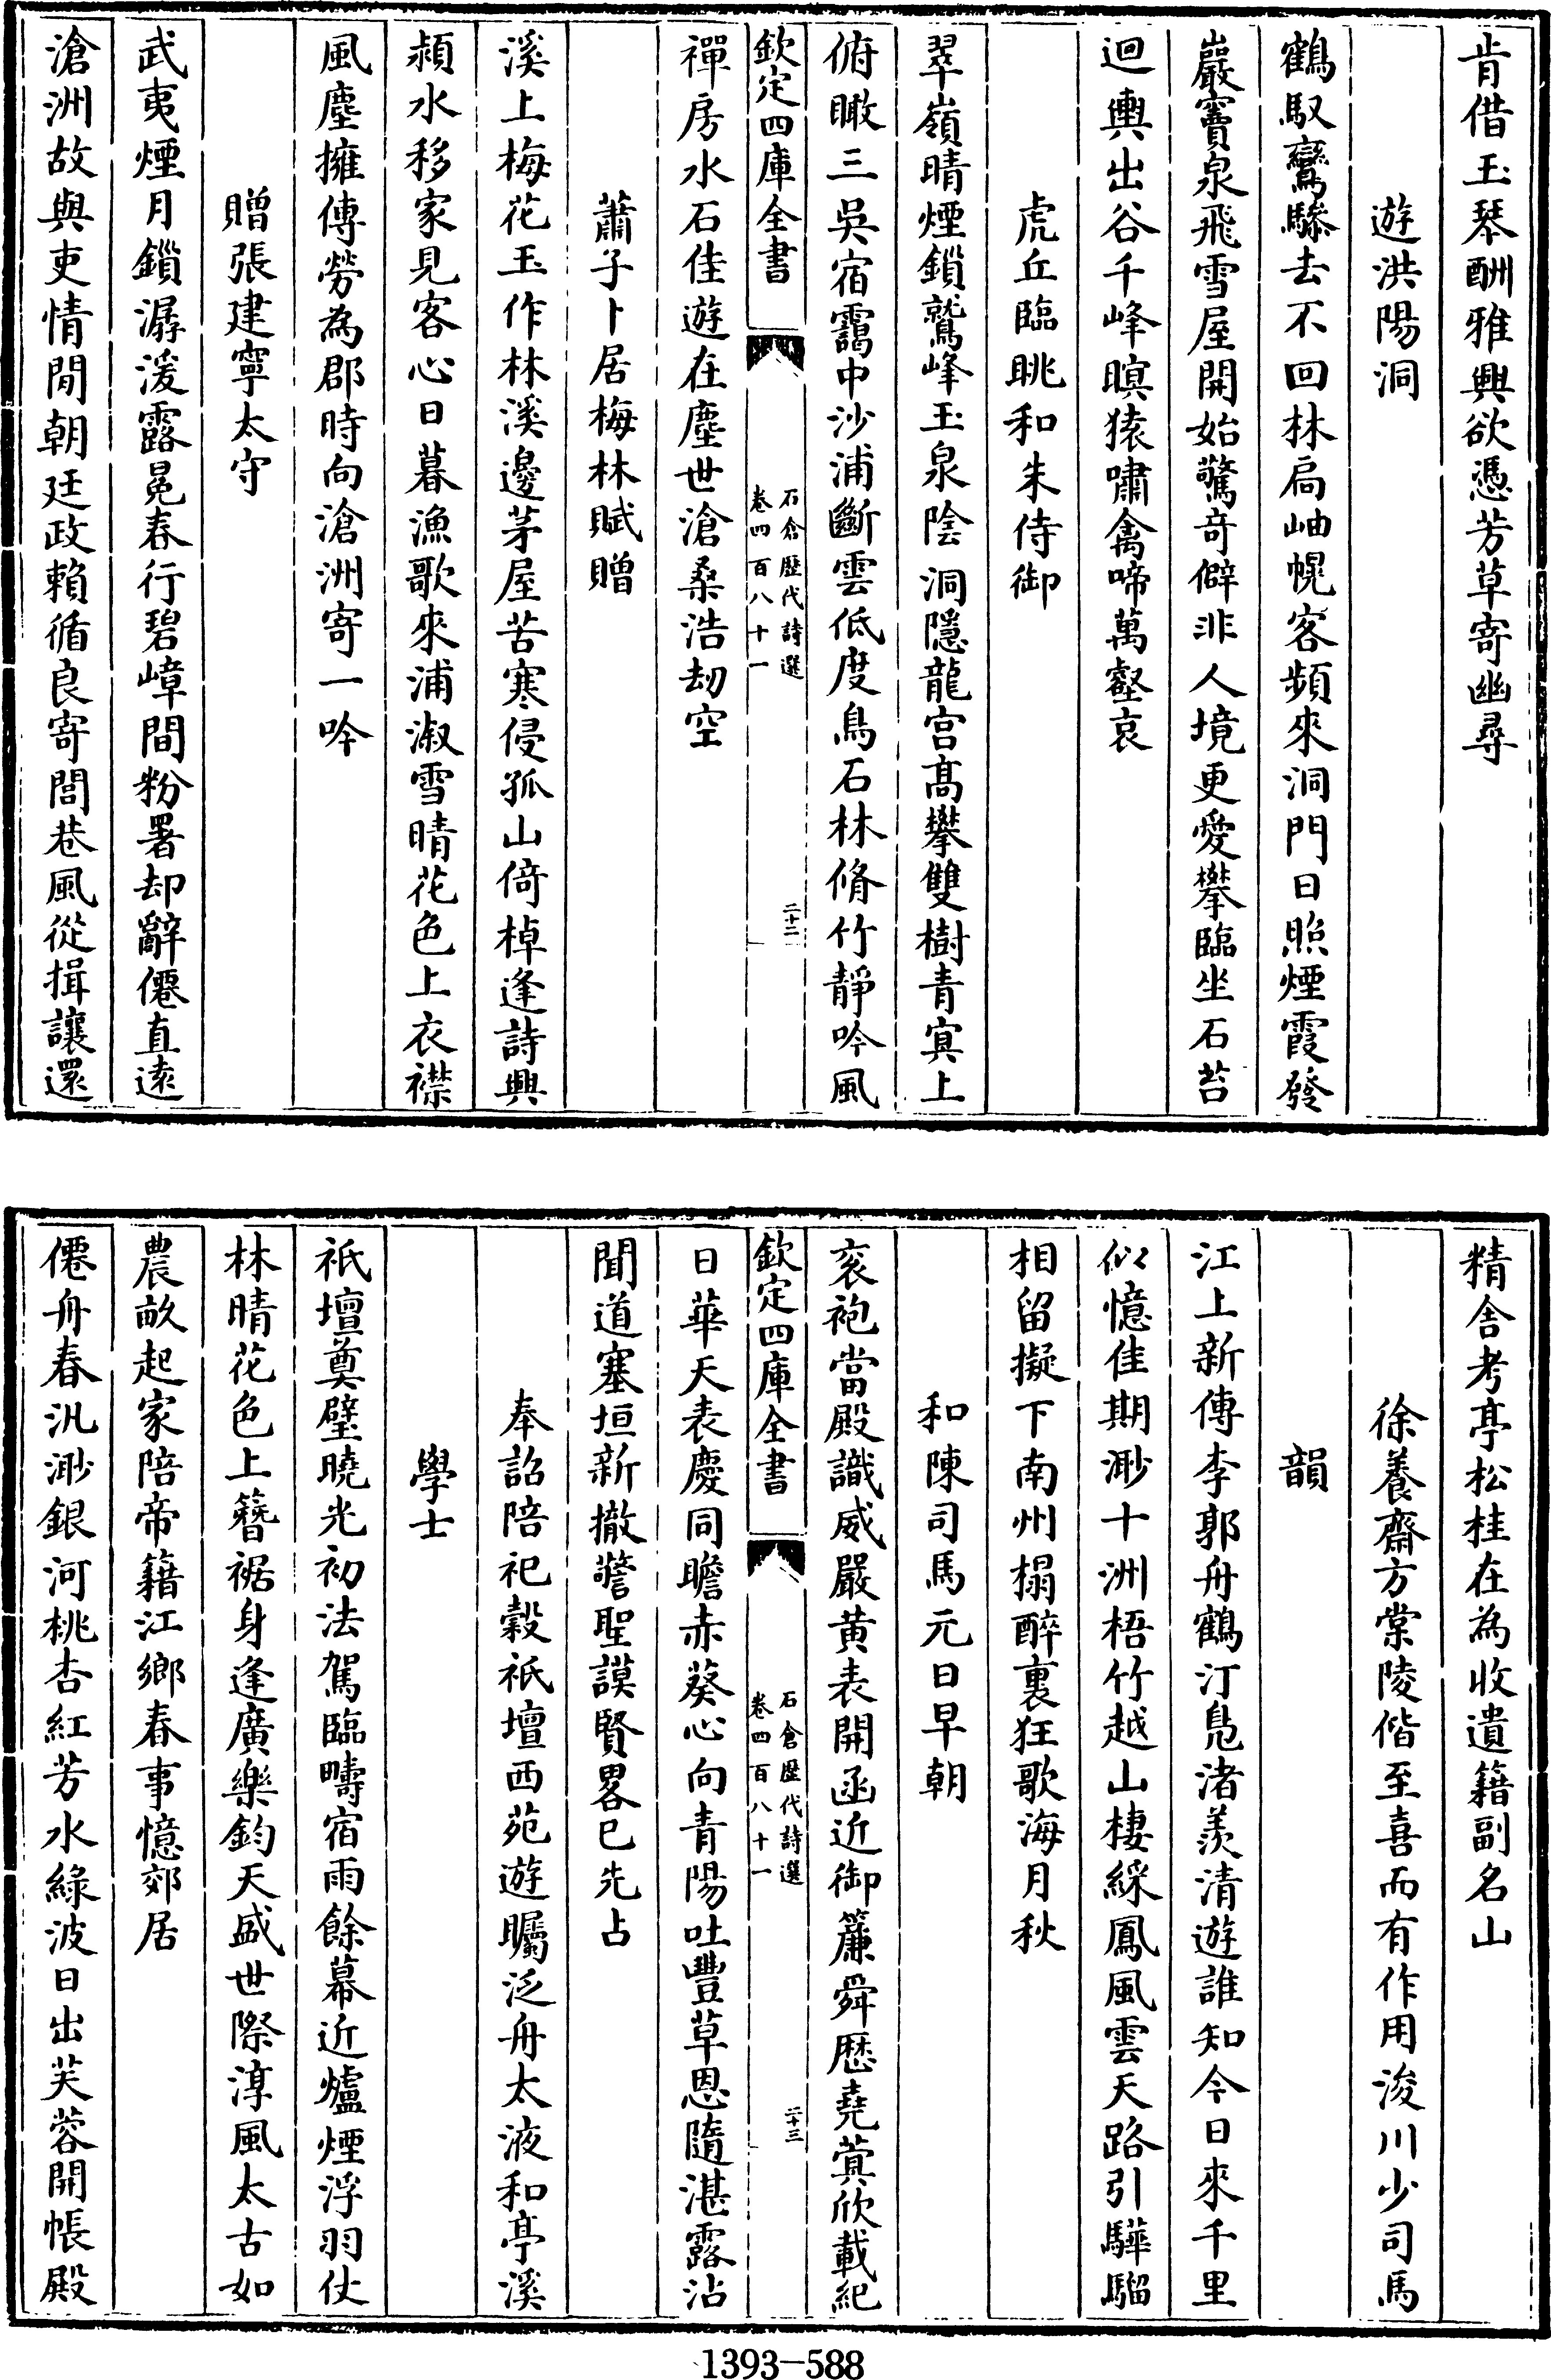 肯借玉琴酬雅興欲憑芳草寄幽尋
遊洪陽洞
鶴馭鸞驂去不回林扃岫幌客頻來洞門日照煙霞發
巖竇泉飛雪屋開始驚奇僻非人境更愛攀臨坐石苔
迴輿出谷千峰暝猿嘯禽啼萬壑哀
虎丘臨眺和朱侍御
翠嶺晴煙鎖鷲峰玉泉陰洞隱龍宮高攀雙樹青冥上
俯瞰三吳宿靄中沙浦斷雲低度鳥石林脩竹靜吟風
欽定四庫全書
石倉歷代詩選
卷四百八十一
二十二
禪房水石佳遊在塵世滄桑浩劫空
蕭子卜居梅林賦贈
溪上梅花玉作林溪邊茅屋苦寒侵孤山倚棹逢詩興
潁水移家見客心日暮漁歌來浦淑雪晴花色上衣襟
風塵擁傳勞為郡時向滄洲寄一吟
贈張建寧太守
武夷煙月鎖潺湲露冕春行碧嶂間粉署却辭僊直遠
滄洲故與吏情閒朝廷政賴循良寄閭巷風從揖讓還
精舍考亭松桂在為收遺籍副名山
徐養齋方棠陵偕至喜而有作用浚川少司馬
韻
江上新傳李郭舟鶴汀鳧渚羨清遊誰知今日來千里
似憶佳期渺十洲梧竹越山棲綵鳳風雲天路引驊騮
相留擬下南州榻醉裏狂歌海月秋
和陳司馬元日早朝
衮袍當殿識威嚴黃表開函近御簾舜歷堯蓂欣載紀
欽定四庫全書
石倉歷代詩選
卷四百八十一
二十三
日華天表慶同瞻赤葵心向青陽吐豐草恩隨湛露沾
聞道塞垣新撤警聖謨賢畧已先占
奉詔陪祀穀祇壇西苑遊矚泛舟太液和亭溪
學士
祇壇奠璧曉光初法駕臨疇宿雨餘幕近爐煙浮羽仗
林晴花色上簪裾身逢廣樂鈞天盛世際淳風太古如
農畝起家陪帝籍江鄉春事憶郊居
僊舟春汎渺銀河桃杏紅芳水綠波日出芙蓉開帳殿
1393—588